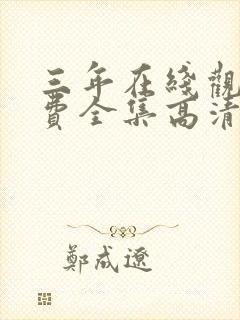 三年在綫觀
費全集高清
鄭成遼